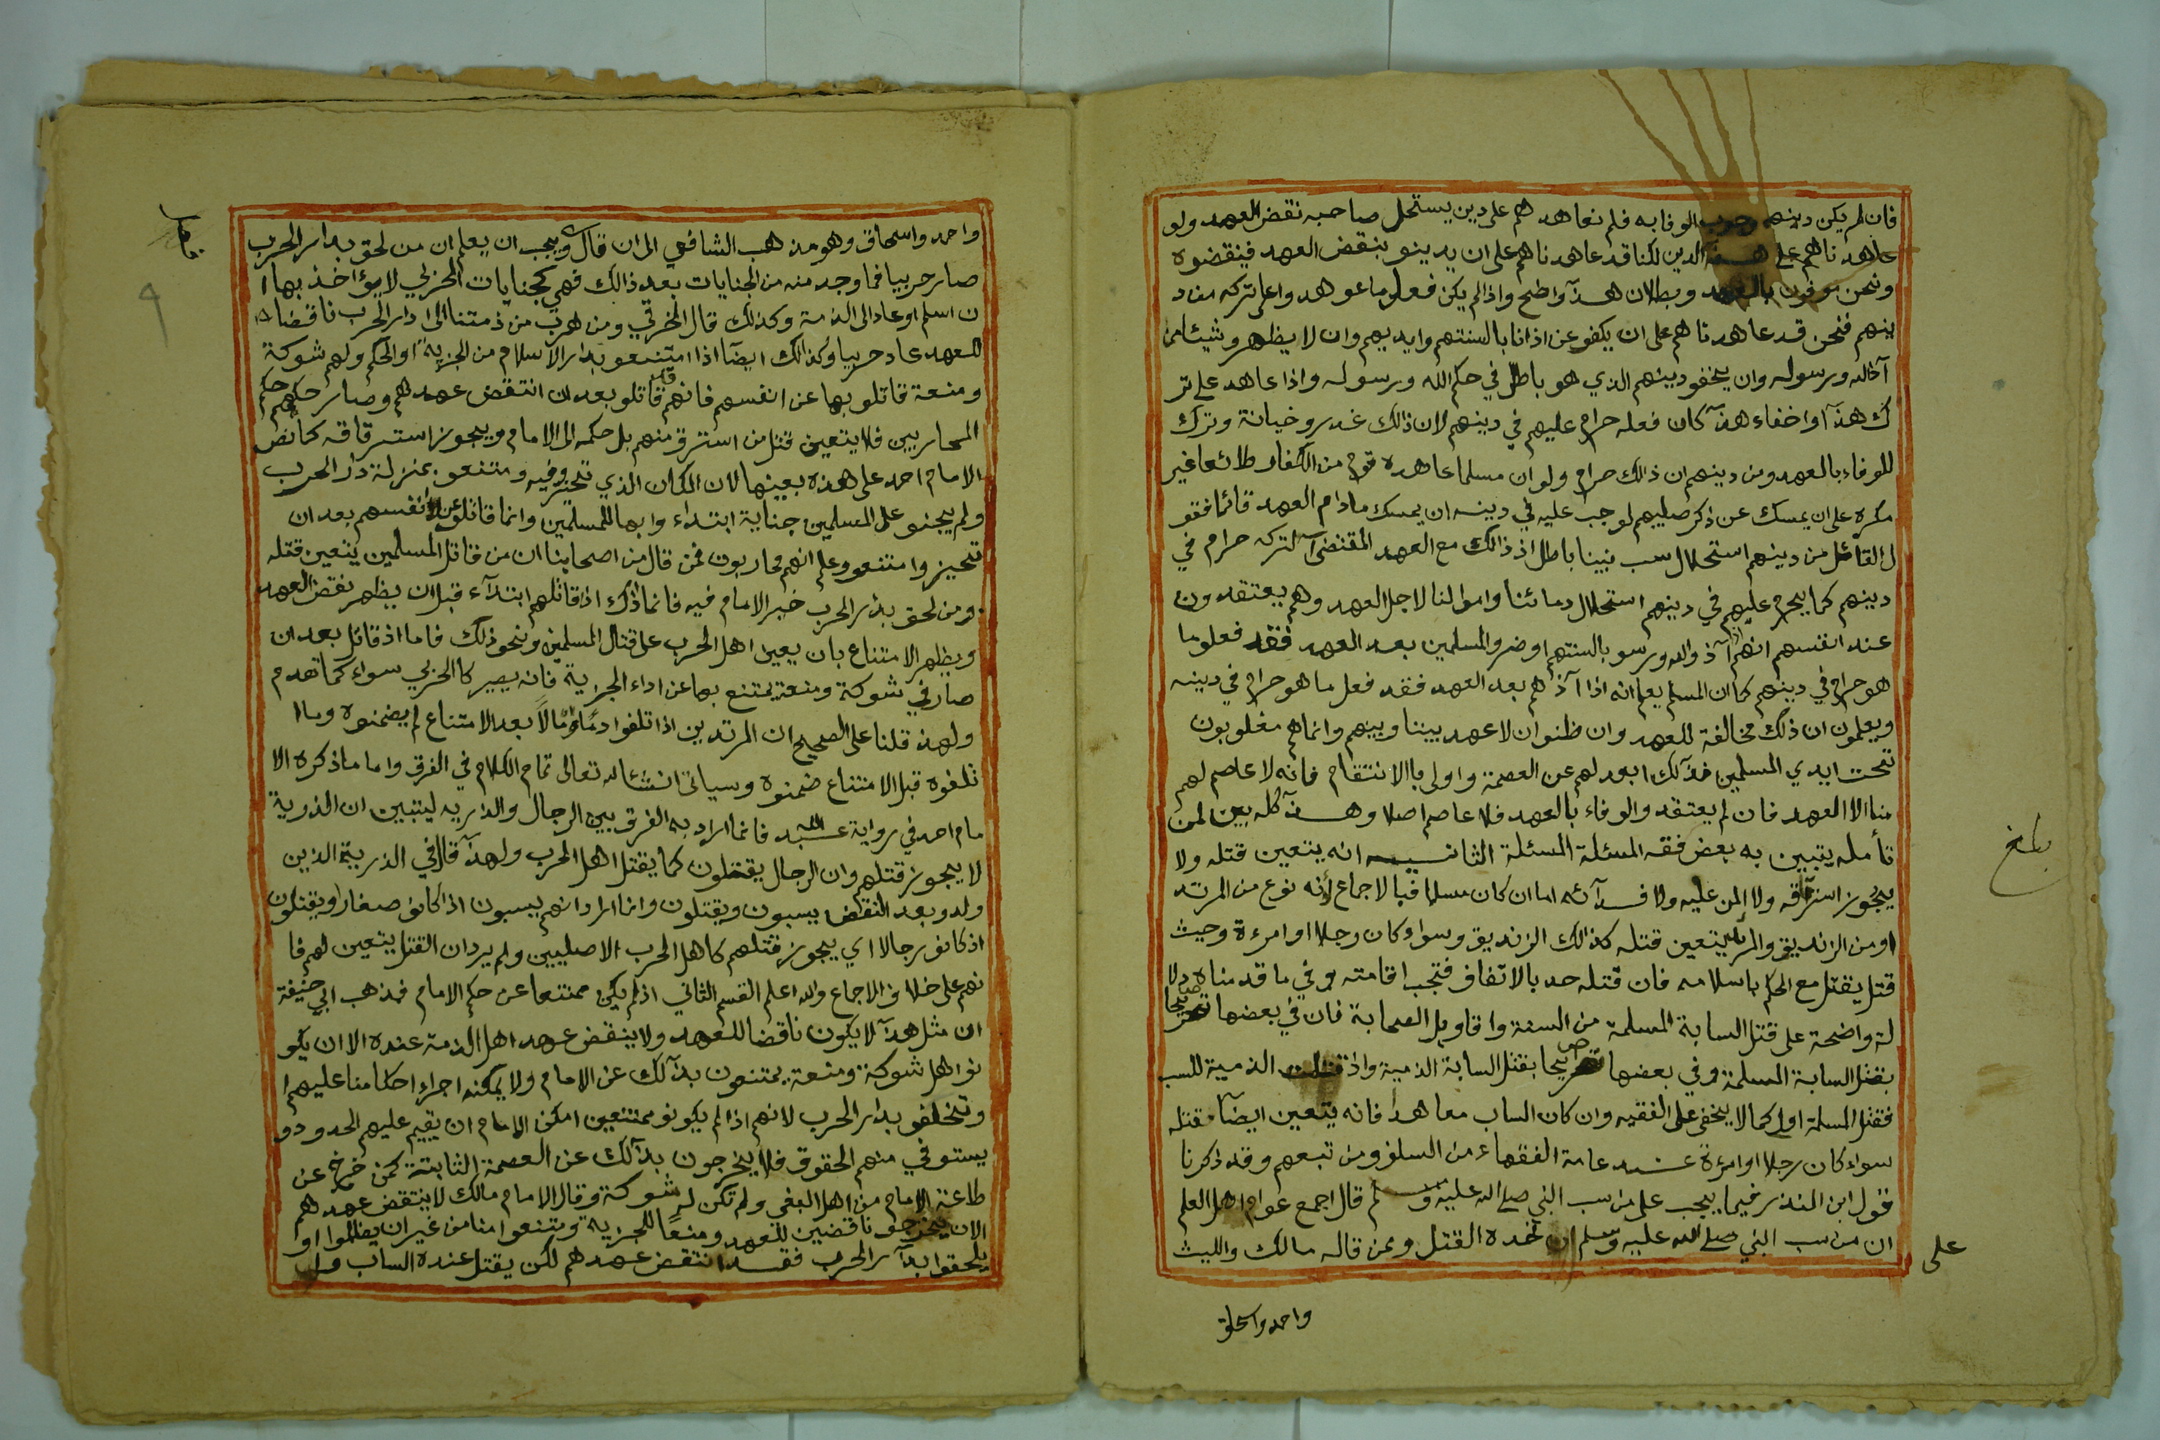 فان لم يكن دينهم وجوب الوفا به فلم نعاهد هم على دين يستحل صاحبه نقض العهد ولو
عاهد ناهم على هذه الدين لكنا قد عاهد ناهم على ان يدينو بنقض العهد فينقضوه
ونحن موفون بالعهد وبطلان هذآ واضح واذالم يكن فعلو ما عوهد واعلى تركه من د
ينهم فنحن قد عاهدناهم على ان يكفو عن اذانا بالسنتهم وايديهم وان لا يظهرو شيئا من
آذالله ورسوله وان يخفو دينهم الذي هو باطل في حكم الله ورسوله واذا عاهد على تر
ك هذآ او اخفاء هذآ كان فعله حرام عليهم في دينهم لان ذالك غدر وخيانة وترك
للوفاء بالعهد ومن دينهم ان ذالك حرام ولو ان مسلما عاهده قوم من الكفار طائعا غير
مكره على ان يمسك عن ذكر صليبهم لوجب عليه في دينه ان يمسك مادام العهد قائما فقو
ل القائل من دينهم استحلال سب نبينا باطل اذ ذالك مع العهد المقتضى لتركه حرام في
دينهم كما يحرم عليهم في دينهم استحلال دمائنا واموالنا لاجل العهد وهم يعتقدون
عند انفسهم انهم اذا آذو الله ورسو بالسنتهم اوضرو المسلمين بعد العهد فقد فعلو ما
هو حرام في دينهم كما ان المسلم يعلم انه اذا آذهم بعد العهد فقد فعل ما هو حرام في دينه
ويعلمون ان ذلك مخالفة للعهد وان ظنوان لا عهد بيننا وبينهم وانما هم مغلوبون
تحت ايدي المسلمين فذآلك ابعد لهم عن العصمة واولى بالانتقام فانه لا عاصم لهم
منا الا العهد فان لم يعتقد والوفاء بالعهد فلا عاصم اصلا وهذآ كله بين لمن
تأمله يتبين به بعض فقه المسئلة المسئلة الثانيه انه يتعين قتله ولا
يجوز استرقاقه ولا المن عليه ولا فدآئه اما ان كان مسلما فبالاجماع لأنه نوع من المرتد
او من الزنديق والمرتد يتعين قتله كذالك الزنديق وسواء كان رجلا او امرءة وحيث
قتل يقتل مع الحكم باسلامه فان قتله حد بالاتفاق فتجب اقامته وفي ما قدمناه دلا
لة واضحة على قتل السابة المسلمة من السنة واقاويل الصحابة فان في بعضها تصريحا
بقتل السابة المسلمة وفي بعضها تصريحا بقتل السابة الذمية واذ قتلت الذمية للسب
فقتل المسلمة اولى كما لا يخفى على الفقيه وان كان الساب معاهدا فانه يتعين ايضآ قتله
سواء كان رجلا او امرءة عند عامة الفقهاء من السلف ومن تبعهم وقد ذكرنا
قول ابن المنذر فيما يجب على من سب النبي صلى الله عليه وسلم قال اجمع عوام اهل العلم
ان من سب النبي صلى الله عليه وسلم ان حده القتل وممن قاله مالك والليث
على
واحد واسحاق
بلغ
واحمد واسحاق وهو مذهب الشافعي الى ان قال ويجب ان يعلم ان من لحق بدار الحرب
صار حربيا فما وجد منه من الجنايات بعد ذالك فهي كجنايات الحربي لا يوء اخذ بها ا
ن اسلم او عاد الى الذمة وكذلك قال الخرقي ومن هرب من ذمتنا الى دار الحرب ناقضا
للعهد عاد حربيا وكذالك ايضآ اذا امتنعو بدار الاسلام من الجزية او الحكم ولهم شوكة
ومنعة قاتلو بها عن انفسهم فانهم قد قاتلو بعد ان انتقض عهدهم وصار حكمهم حكم
المحاربين فلا يتعين قتل من استرق منهم بل حكمه الى الامام ويجوز استرقاقه كما نص
الامام احمد على هذه بعينها لان المكان الذي تحيزو فيه ومتنعو بمنزلة دار الحرب
ولم يجنو على المسلمين جناية ابتداء وابها للمسلمين وانما قاتلو عن انفسهم بعد ان
تحيزوا متنعو وعلم انهم محاربون فمن قال من اصحابنا ان من قاتل المسلمين يتعين قتله
ومن لحق بدار الحرب خير الامام فيه فانما ذاك اذا قاتلهم ابتدآء قبل ان يظهر نقض العهد
ويظهر الامتناع بان يعين اهل الحرب على قتال المسلمين ونحو ذلك فاما اذ قاتل بعد ان
صار في شوكة ومنعة يمتنع بها عن اداء الجزية فانه يصير كالحربي سواء كما تقدم
ولهذ قلنا على الصحيح ان المرتدين اذا تلفوا دمًا ومالاً بعد الامتناع لم يضمنوه وما ا
تلفوه قبل الامتناع ضمنوه وسياتي انشالله تعالى تمام الكلام في الفرق واما ما ذكره الا
مام احمد في رواية عبد الله فانما اراد به الفرق بين الرجال والذريه ليتبين ان الذرية
لا يجوز قتلهم وان الرجال يقتلون كما يقتل اهل الحرب ولهذآ قال في الذرية الذين
ولدو بعد النقض يسبون ويقتلون وانما اراد انهم يسبون اذا كانو صغار ويقتلون
اذ كانو رجالا اي يجوز قتلهم كاهل الحرب الاصليين ولم يرد ان القتل يتعين لهم فا
نهم على خلاف الاجماع والله اعلم القسم الثاني اذ لم يكن ممتنعا عن حكم الامام فمذهب ابي حنيفة
ان مثل هذآ لا يكون ناقضا للعهد ولا ينقض عهد اهل الذمة عنده الا ان يكو
نو اهل شوكة ومنعة يمتنعون بذآلك عن الامام ولا يمكنه اجراء احكامنا عليهم ا
وتخلفو بدار الحرب لانهم اذا لم يكونو ممتنعين امكن الامام ان يقيم عليهم الحدود و
يستوفي منهم الحقوق فلا يخرجون بذآلك عن العصمة الثابتة كمن خرج عن
طاعة الامام من اهل البغي ولم تكن له شوكة وقال الامام مالك لا ينتقض عهدهم
الا ان يخرجو ناقضين للعهد ومنعًا للجزية ومتنعوا منا من غير ان يظلموا او
يلحقوا بدآر الحرب فقد انتقض عهدهم لكن يقتل عنده الساب
٩